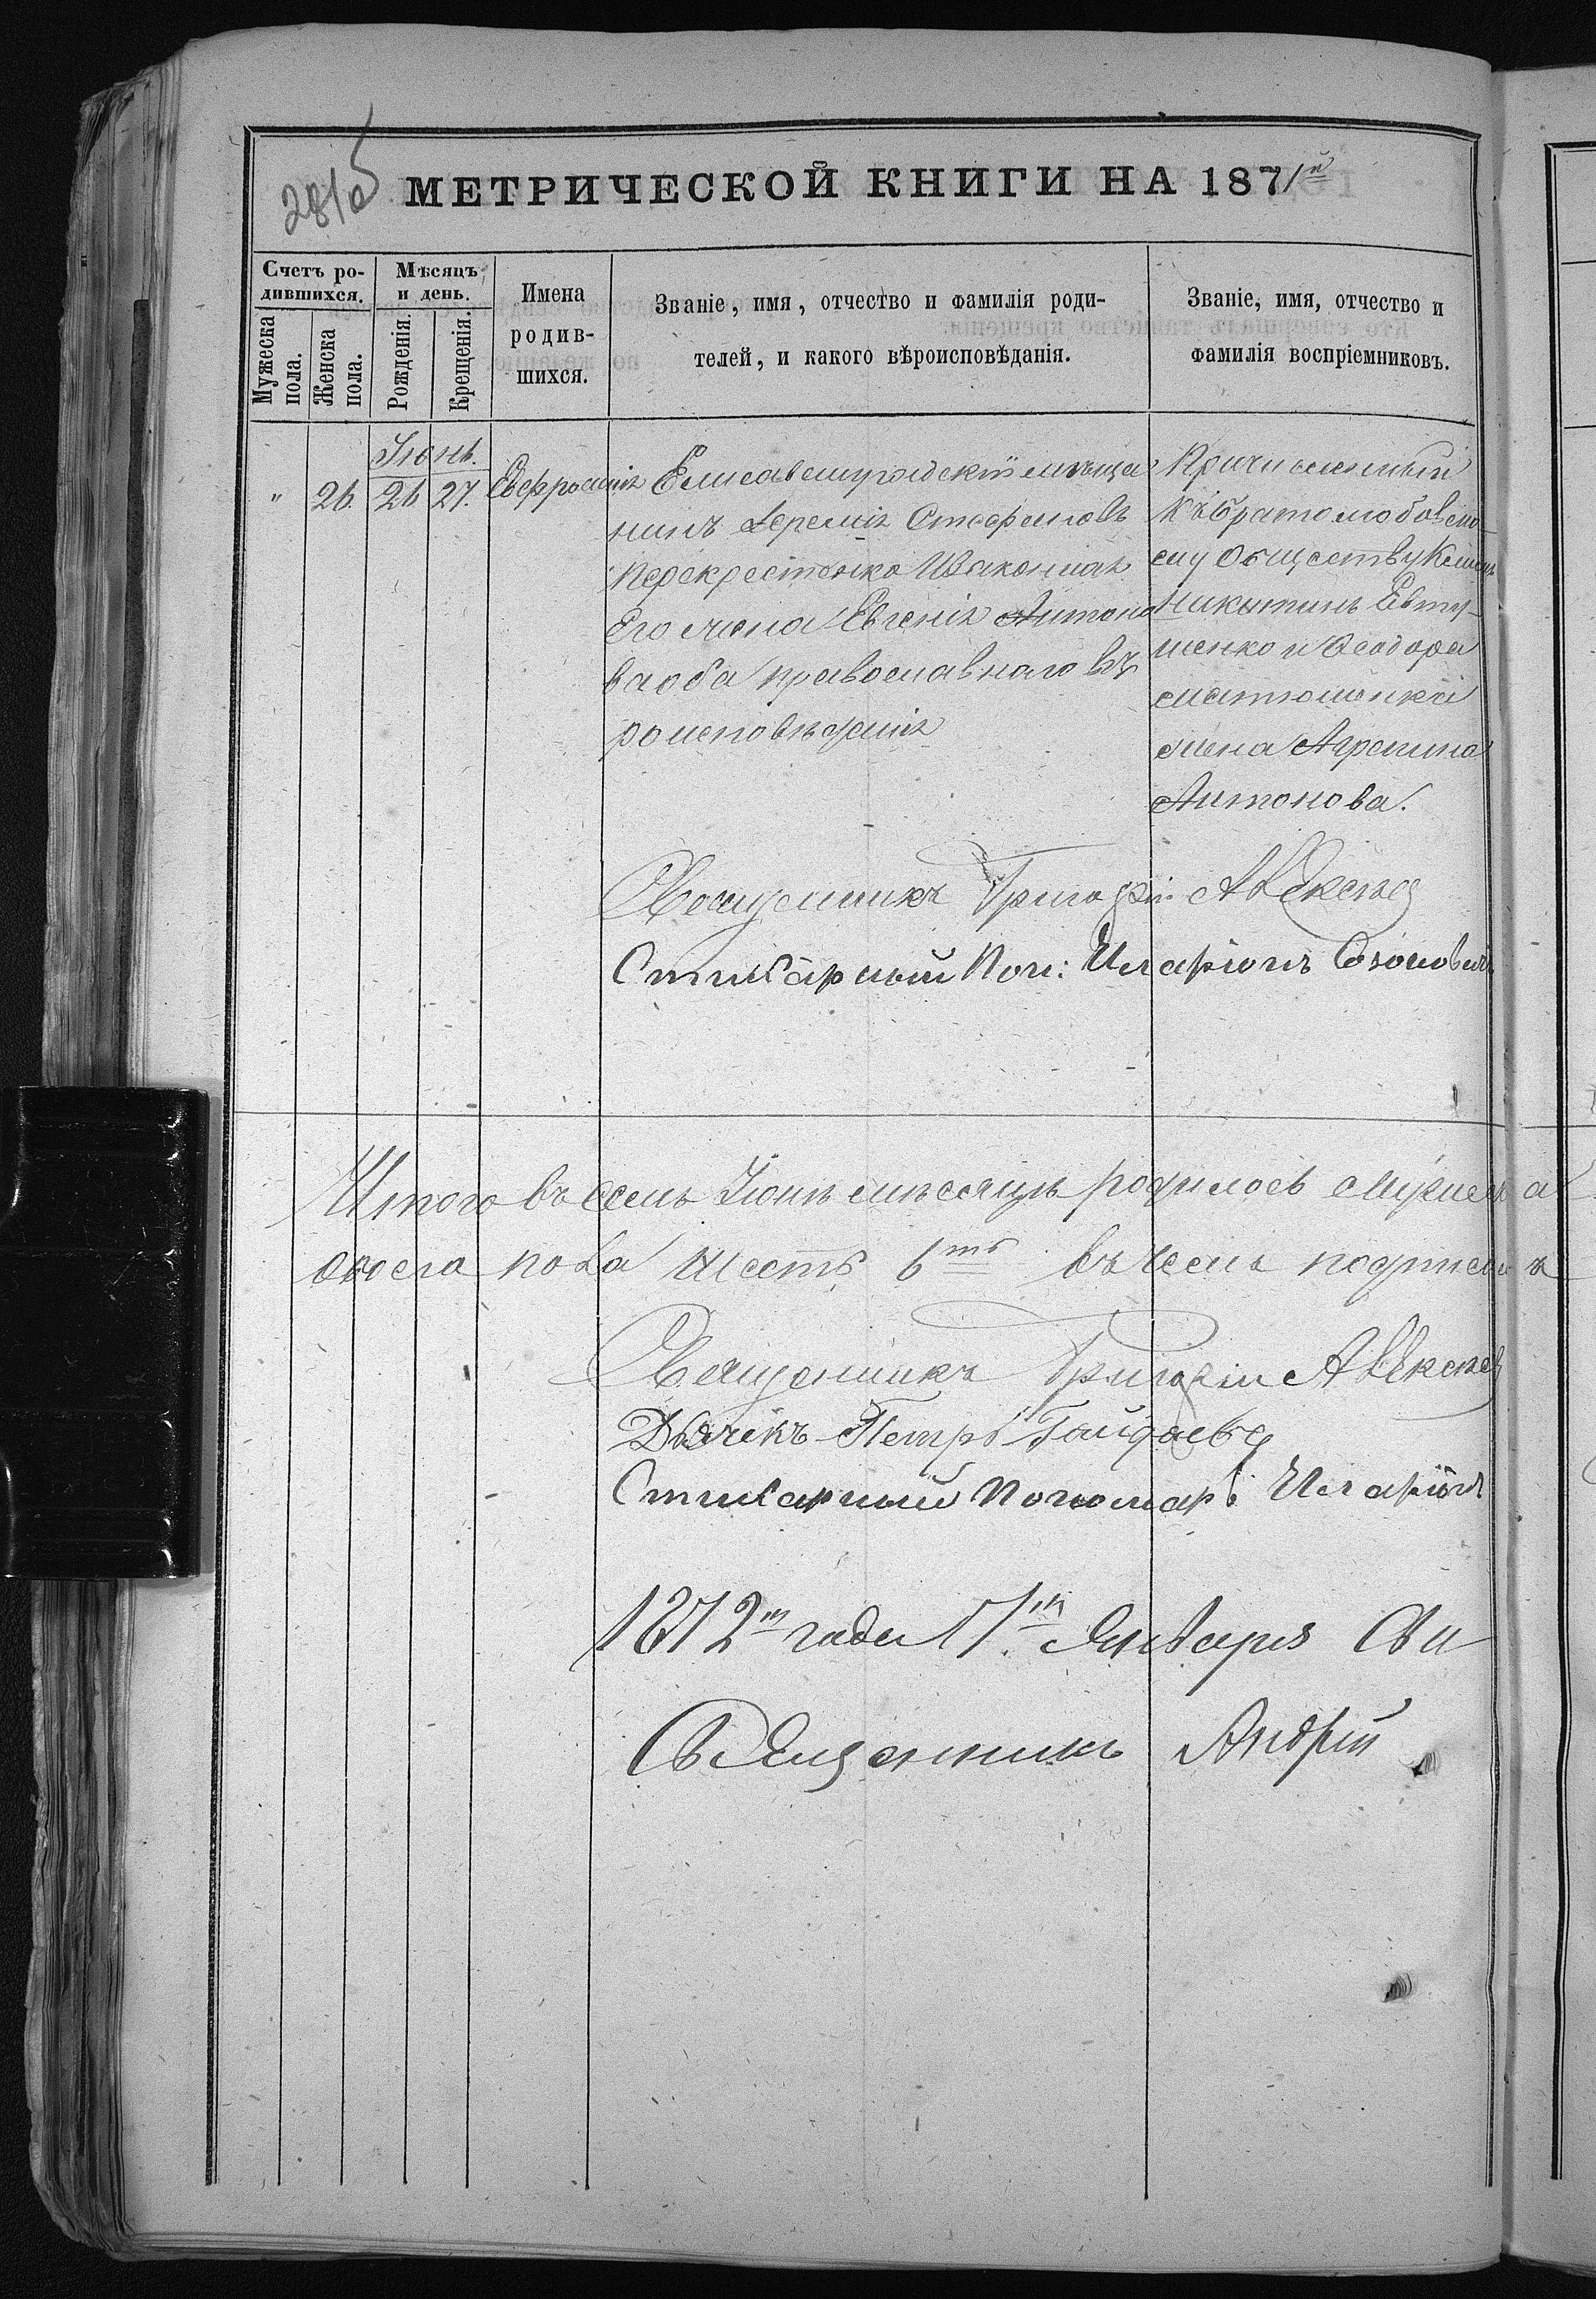 281об
МЕТРИЧЕСКОЙ КНИГИ НА 1871й
Счетъ ро-
дившихся.
Мужеска
пола.
Женска
пола.
Мѣсяцъ
и день.
Рожденія.
Крещенія.
Имена
родив-
шихся.
Званіе, имя, отчество и фамилія роди-
телей, и какого вѣроисповѣданія.
Званіе, имя, отчество и
фамилія воспріемниковъ.
Іюнь.
" 26. 26 27. Евфросинія
Елисаветградскій мѣща
нинъ Іеремія Стефановъ
Перекрестенко
Его жена Евгенія Антоно
ва оба православнаго вѣ
роисповѣданія
Причисленный
къ Братолюбовско-
му Обществу
Никитинъ Евту-
шенко и Ѳеодора
жена Агрепина
Антонова.
Священникъ Григорій
Стихарный Пон: Иларіонъ
Итого въ семъ Іюнѣ мѣсяцѣ родилось мужеска
пола шесть 6ть въ чемъ подписом
Священникъ Григорій
Дьячекъ Петръ
Стихарный Пономарь Иларіон
1872го года 17го Января
Священникъ Андрій